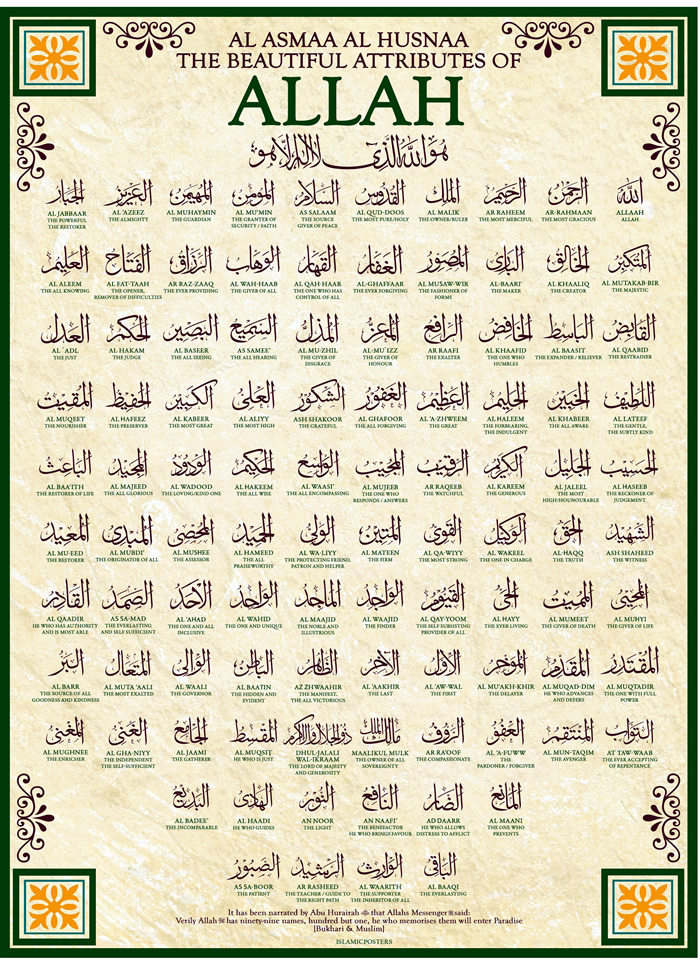 AL ASMAA AL HUSNAA
THE BEAUTIFUL ATTRIBUTES OF
ALLAH
هو الله الذي لا اله الا هو
الله
ALLAAH
ALLAH
الرحمن
AR-RAHMAAN
THE MOST GRACIOUS
الرحيم
AR RAHEEM
THE MOST MERCIFUL
الملك
AL MALIK
THE OWNER/RULER
القدوس
AL QUD-DOOS
THE MOST PURE/HOLY
السلام
AS SALAAM
THE SOURCE
GIVER OF PEACE
المؤمن
AL MU'MIN
THE GRANTER OF
SECURITY / FAITH
المهيمن
AL MUHAYMIN
THE GUARDIAN
العزيز
AL 'AZEEZ
THE ALMIGHTY
الجبار
AL JABBAAR
THE POWERFUL
THE RESTORER
المتكبر
AL MUTAKAB-BIR
THE MAJESTIC
الخالق
AL KHAALIQ
THE CREATOR
البارئ
AL-BAARI'
THE MAKER
المصور
AL MUSAW-WIR
THE FASHIONER OF
FORMS
الغفار
AL-GHAFFAAR
THE EVER FORGIVING
القهار
AL QAH-HAAR
THE ONE WHO HAS
CONTROL OF ALL
الوهاب
AL WAH-HAAB
THE GIVER OF ALL
الرزاق
AR RAZ-ZAAQ
THE EVER PROVIDING
الفتاح
AL FAT-TAAH
THE OPENER,
REMOVER OF DIFFICULTIES
العليم
AL ALEEM
THE ALL KNOWING
القابض
AL QAABID
THE RESTRAINER
الباسط
AL BAASIT
THE EXPANDER / RELIEVER
الخافض
AL KHAAFID
THE ONE WHO
HUMBLES
الرافع
AR RAAFI
THE EXALTER
المعز
AL-MU'IZZ
THE GIVER OF
HONOUR
المذل
AL MU-ZHIL
THE GIVER OF
DISGRACE
السميع
AS SAMEE'
THE ALL HEARING
البصير
AL BASEER
THE ALL SEEING
الحكم
AL HAKAM
THE JUDGE
العدل
AL 'ADL
THE JUST
اللطيف
AL LATEEF
THE GENTLE,
THE SUBTLY KIND
الخبير
AL KHABEER
THE ALL AWARE
الحليم
AL HALEEM
THE FORBEARING,
THE INDULGENT
العظيم
AL 'A-ZHWEEM
THE GREAT
الغفور
AL GHAFOOR
THE ALL FORGIVING
الشكور
ASH SHAKOOR
THE GRATEFUL
العلي
AL ALIYY
THE MOST HIGH
الكبير
AL KABEER
THE MOST GREAT
الحفيظ
AL HAFEEZ
THE PRESERVER
المقيت
AL MUQEET
THE NOURISHER
الحسيب
AL HASEEB
THE RECKONER OF
JUDGEMENT
الجليل
AL JALEEL
THE MOST
HIGH/HOUNOURABLE
الكريم
AL KAREEM
THE GENEROUS
الرقيب
AR RAQEEB
THE WATCHFUL
المجيب
AL MUJEEB
THE ONE WHO
RESPONDS / ANSWERS
الواسع
AL WAASI'
THE ALL ENCOMPASSING
الحكيم
AL HAKEEM
THE ALL WISE
الودود
AL WADOOD
THE LOVING/KIND ONE
المجيد
AL MAJEED
THE ALL GLORIOUS
الباعث
AL BAA'TTH
THE RESTORER OF LIFE
الشهيد
ASH SHAHEED
THE WITNESS
الحق
AL-HAQQ
THE TRUTH
الوكيل
AL WAKEEL
THE ONE IN CHARGE
القوي
AL QA-WIYY
THE MOST STRONG
المتين
AL MATEEN
THE FIRM
الولي
AL WA-LIYY
THE PROTECTING FRIEND,
PATRON AND HELPER
الحميد
AL HAMEED
THE ALL
PRAISEWORTHY
المحصي
AL MUSHEE
THE ASSESSOR
المبدئ
AL MUBDI'
THE ORIGINATOR OF ALL
المعيد
AL MU-EED
THE RESTORER
المحيي
AL MUHYI
THE GIVER OF LIFE
المميت
AL MUMEET
THE GIVER OF DEATH
الحي
AL HAYY
THE EVER LIVING
القيوم
AL QAY-YOOM
THE SELF SUBSISTING
PROVIDER OF ALL
الواجد
AL WAAJID
THE FINDER
الماجد
AL MAAJID
THE NOBLE AND
ILLUSTRIOUS
الواحد
AL WAHID
THE ONE AND UNIQUE
الأحد
AL 'AHAD
THE ONE AND ALL
INCLUSIVE
الصمد
AS SA-MAD
THE EVERLASTING
AND SELF SUFFICIENT
القادر
AL QAADIR
HE WHO HAS AUTHORITY
AND IS MOST ABLE
المقتدر
AL MUQTADIR
THE ONE WITH FULL
POWER
المقدم
AL MUQAD-DIM
HE WHO ADVANCES
AND DEFERS
المؤخر
AL MU'AKH-KHIR
THE DELAYER
الأول
AL 'AW-WAL
THE FIRST
الآخر
AL 'AAKHIR
THE LAST
الظاهر
AZ ZHWAAHIR
THE MANIFEST,
THE ALL VICTORIOUS
الباطن
AL BAATIN
THE HIDDEN AND
EVIDENT
الوالي
AL WAALI
THE GOVERNOR
المتعال
AL MUTA 'AALI
THE MOST EXALTED
البر
AL BARR
THE SOURCE OF ALL
GOODNESS AND KINDNESS
التواب
AT TAW-WAAB
THE EVER ACCEPTING
OF REPENTANCE
المنتقم
AL MUN-TAQIM
THE AVENGER
العفو
AL 'A-FUWW
THE
PARDONER / FORGIVER
الرؤف
AR RA'OOF
THE COMPASSIONATE
مالك الملك
MAALIKUL MULK
THE OWNER OF ALL
SOVEREIGNTY
ذو الجلال والاكرام
DHUL-JALALI
WAL-IKRAAM
THE LORD OF MAJESTY
AND GENEROSITY
المقسط
AL MUQSIT
HE WHO IS JUST
الجامع
AL JAAMI
THE GATHERER
الغني
AL GHA-NIYY
THE INDEPENDENT
THE SELF-SUFFICIENT
المغني
AL MUGHNEE
THE ENRICHER
المانع
AL MAANI
THE ONE WHO
PREVENTS
الضار
AD DAARR
HE WHO ALLOWS
DISTRESS TO AFFLICT
النافع
AN NAAFI'
THE BENEFACTOR
HE WHO BRINGS FAVOUR
النور
AN NOOR
THE LIGHT
الهادي
AL HAADI
HE WHO GUIDES
البديع
AL BADEE'
THE INCOMPARABLE
الباقي
AL BAAQI
THE EVERLASTING
الوارث
AL WAARITH
THE SUPPORTER
THE INHERITOR OF ALL
الرشيد
AR RASHEED
THE TEACHER / GUIDE TO
THE RIGHT PATH
الصبور
AS SA-BOOR
THE PATIENT
It has been narrated by Abu Hurairah that Allahs Messenger ﷺ said:
Verily Allah has ninety-nine names, hundred but one, he who memorises them will enter Paradise
[Bukhari & Muslim]
ISLAMICPOSTERS